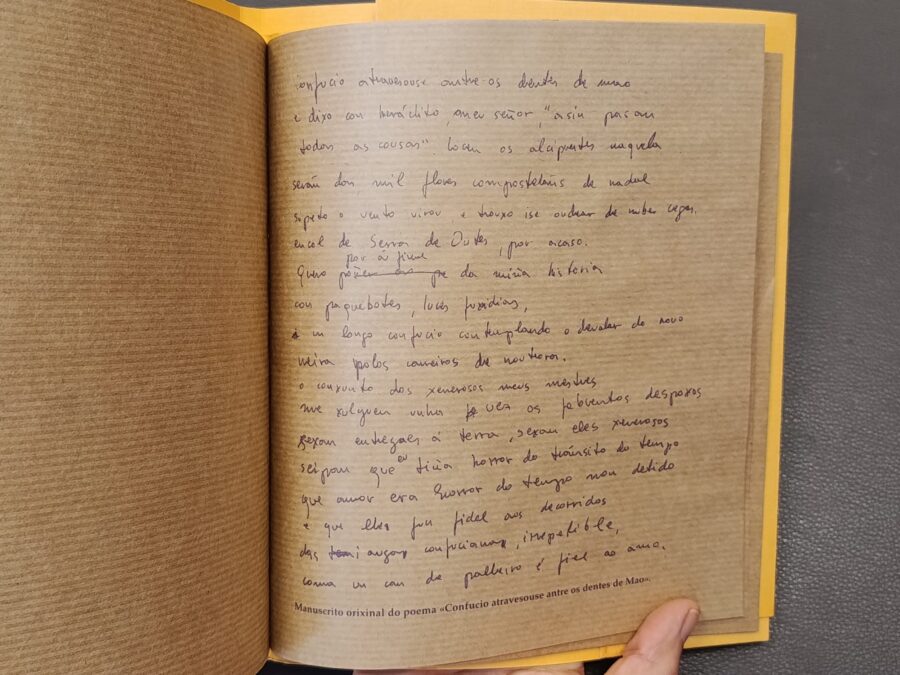 confucio atravesouse antre os dentes de mao
e dixo con heráclito, meu señor, "asin pasan
todas as cousas". locen os alciprestes naquela
serán dous mil flores composteláns de nadal
supeto o vento virou, e trouxo ise ondear de nubes cegas.
encol de Serra de Outes, por acaso.
Quero por á fiue pe da miña historia
con paquebotes, luces fuxidias,
un longo confucio contemplando o devalar do novo
neira polos camiños de noutrora.
o conxunto dos xenerosos meus mestres
me xulguen unha vez os despoxos
sexan entregaes á terra, sexan eles xenerosos
seipan que eu tiña horror do tránsito do tempo
que amor era horror do tempo non detido
e que eles fun fidel aos decorridos
das augas confucianas, irrepetible,
coma un can de palleiro é fiel ao amo.
Manuscrito orixinal do poema «Confucio atravesouse antre os dentes de Mao».